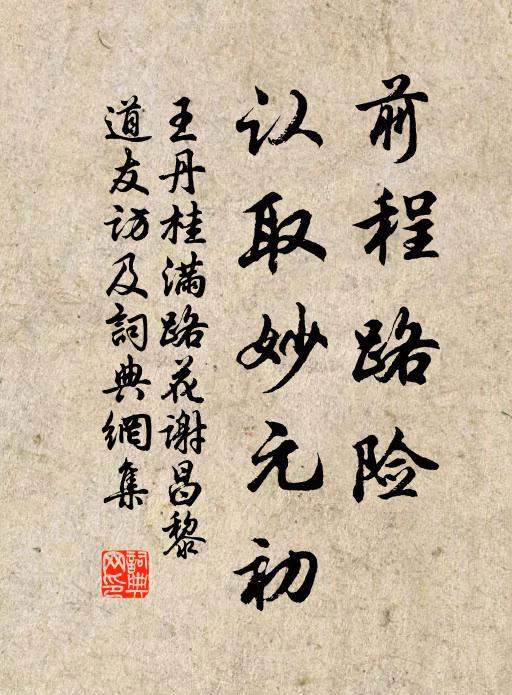 前程路险
认取妙元初
王丹桂满路花谢昌黎
道友访及詞典網集
詞典網印